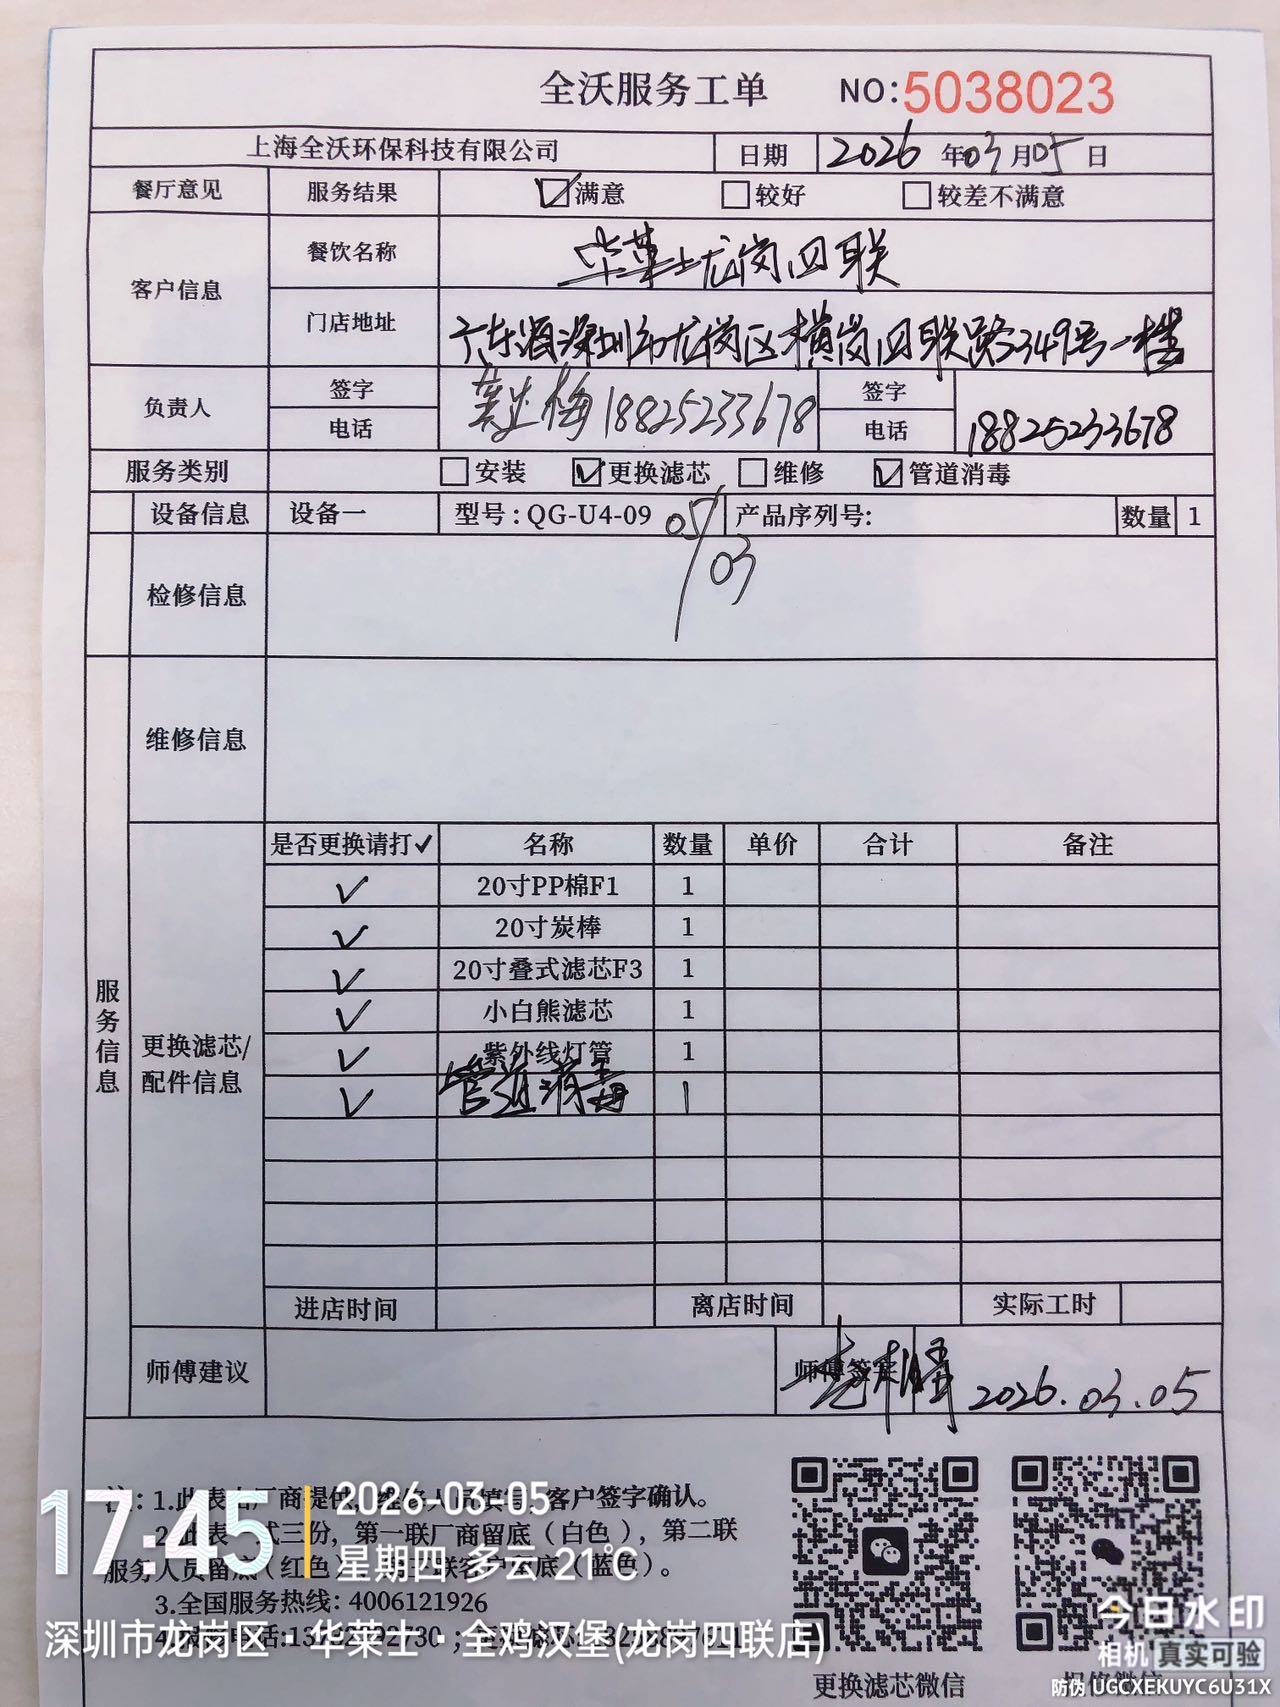 全沃服务工单 NO:5038023
上海全沃环保科技有限公司 日期 2026年03月05日
餐厅意见 服务结果 满意 较好 较差不满意
客户信息 餐饮名称 华莱士龙岗四联
门店地址 广东省深圳市龙岗区横岗四联路349号一楼
负责人 签字 18825233678 签字
电话 电话 18825233678
服务类别 安装 更换滤芯 维修 管道消毒
设备信息 设备一 型号:QG-U4-09 05/03 产品序列号: 数量 1
检修信息
维修信息
服务信息
更换滤芯/
配件信息
是否更换请打✓ 名称 数量 单价 合计 备注
✓ 20寸PP棉F1 1
✓ 20寸炭棒 1
✓ 20寸叠式滤芯F3 1
✓ 小白熊滤芯 1
✓ 紫外线灯管 1
✓ 管道消毒 1
进店时间 离店时间 实际工时
师傅建议 师傅签字 2026.03.05
注:1.此表由厂商提供,维修人员填写,客户签字确认。
2.此表一式三份,第一联厂商留底(白色),第二联
服务人员留底(红色),客户留底(蓝色)。
3.全国服务热线:4006121926
更换滤芯微信 报修微信
17:45
2026-03-05
星期四 多云 21℃
深圳市龙岗区·华莱士·全鸡汉堡(龙岗四联店)
今日水印
相机 真实可验
防伪 UGCXEKUYC6U31X